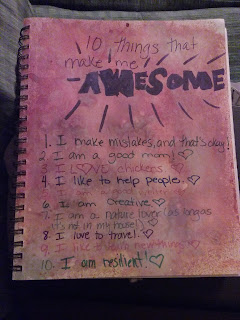 10 things that
make me
AWESOME
1. I make mistakes, and that's okay!
2 I am a good mom! ♡
3 I L♡VE chickens
4. I like to help people. ♡
6 I am creative ♡
7. I am a nature lover (as long as
it's not in my house!)
8 I love to travel. ♡
9 I like
10. I am resilient! ♡